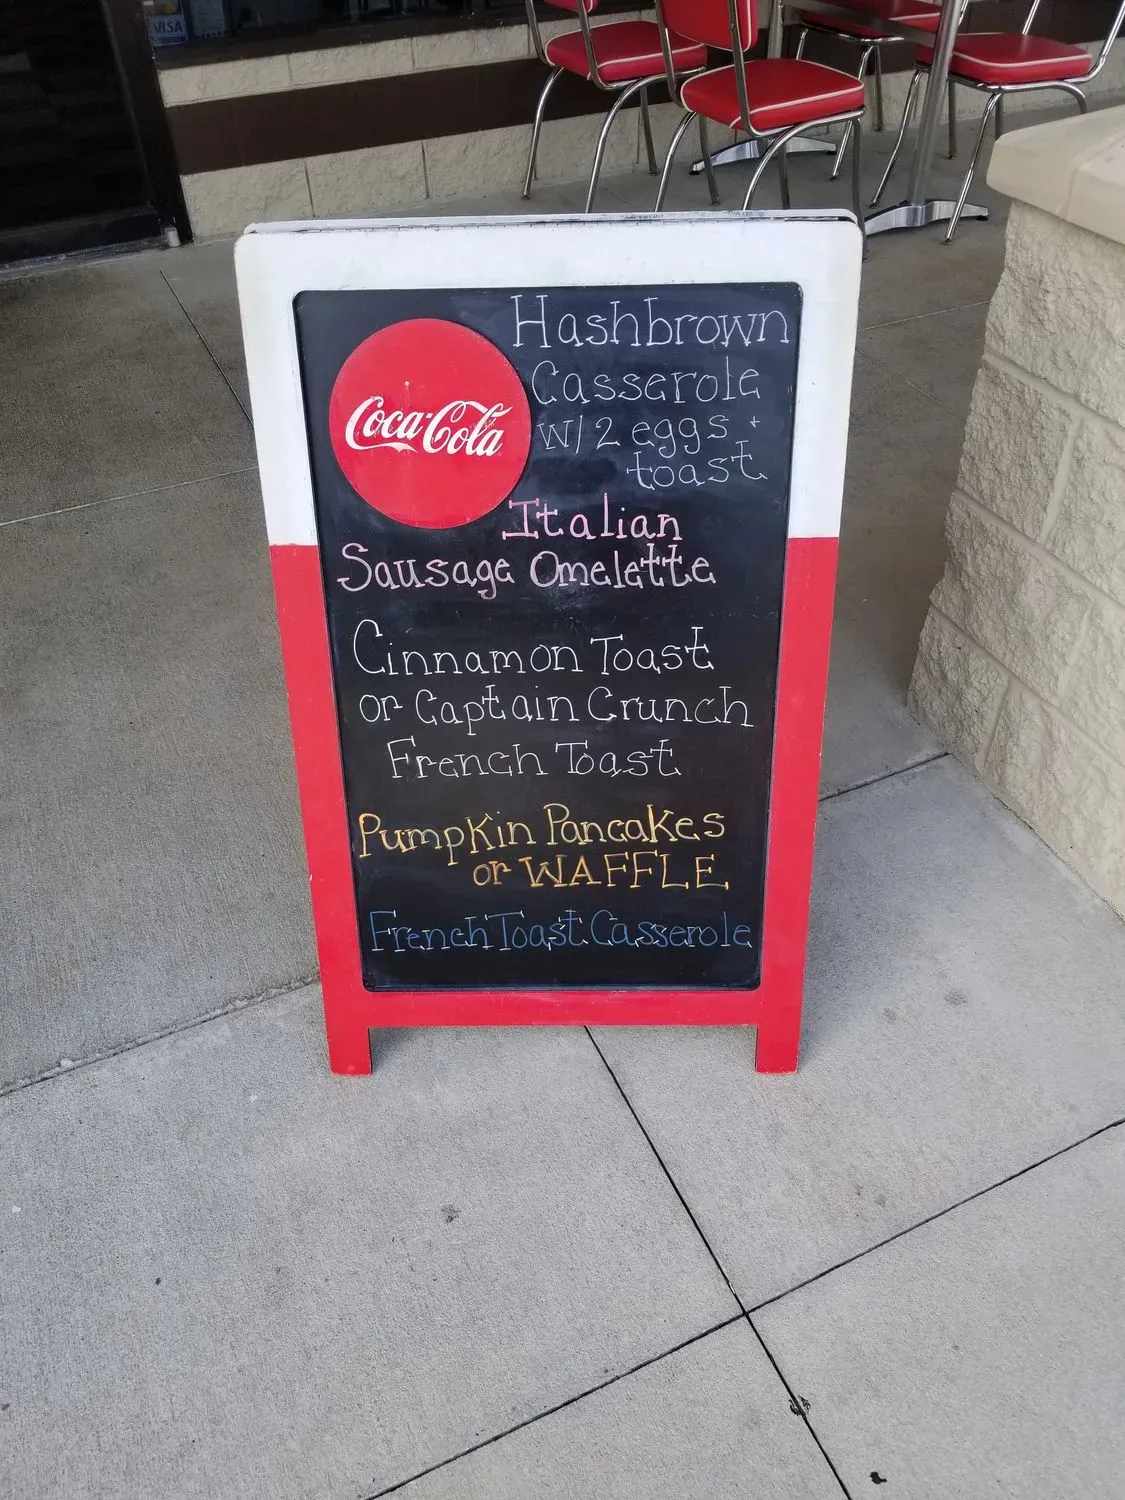 VISA
Coca-Cola
Hashbrown
Casserole
w/2 eggs +
toast
Italian
Sausage Omelette
Cinnamon Toast
or Captain Crunch
French Toast
Pumpkin Pancakes
or WAFFLE
French Toast Casserole